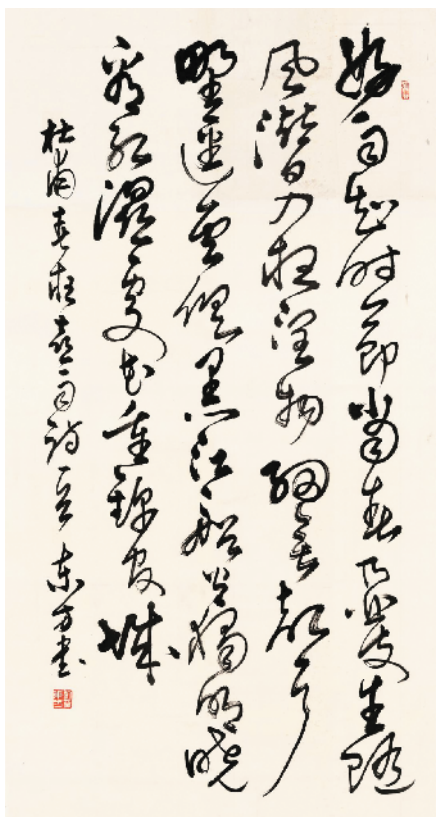 好雨知時節當春乃發生隨
風潛入夜潤物細無聲
野徑雲俱黑江船火獨明曉
看紅濕處花重錦官城
杜甫春夜喜雨詩一首 東方書